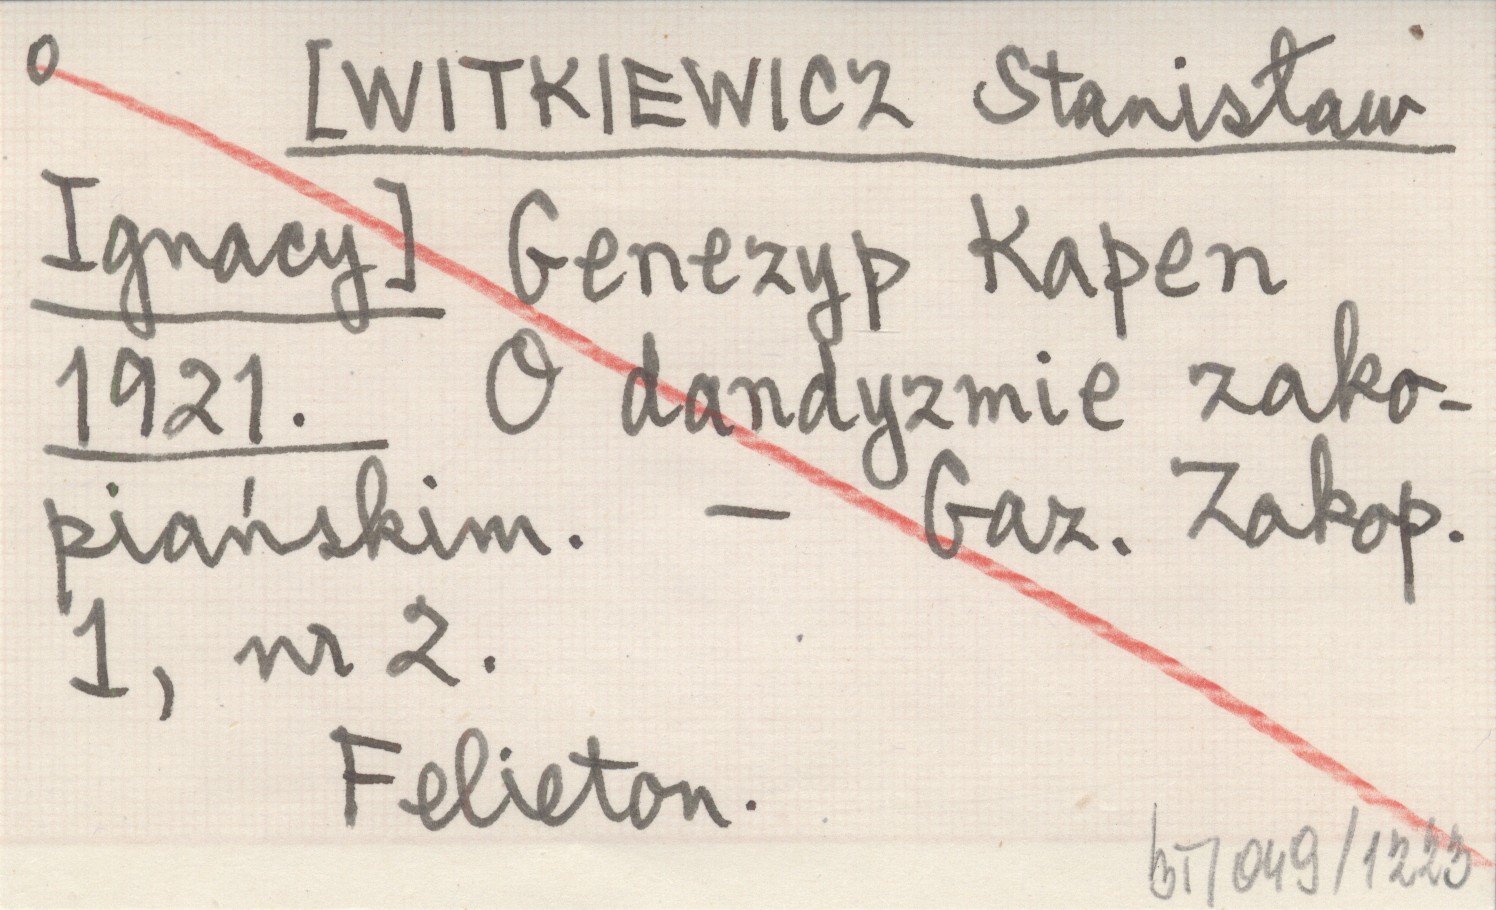 o [WITKIEWICZ Stanisław
Ignacy] Genezyp Kapen
1921. O dandyzmie zako-
piańskim. – Gaz. Zakop.
1, nr 2.
Felieton.
049/1223